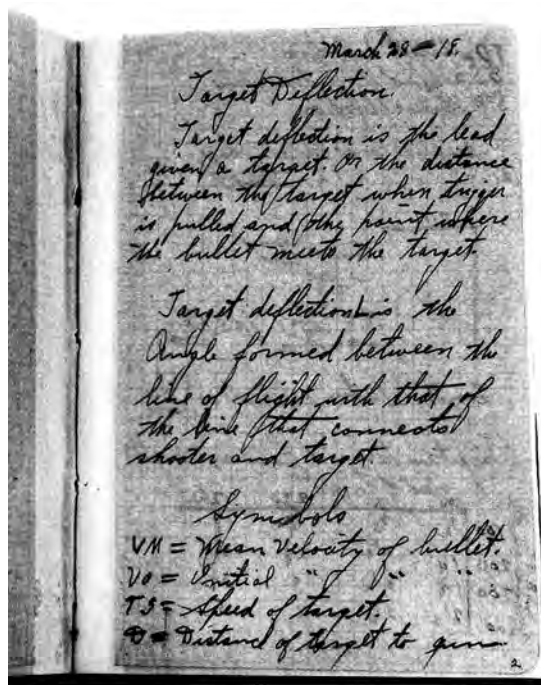 March 28 - 18.
Target Deflection.
Target deflection is the lead
given a target. Or the distance
between the target when trigger
is pulled and the point where
the bullet meets the target.
Target deflection L is the
Angle formed between the
line of flight with that of
the line that connects
shooter and target.
Symbols
VM = Mean Velocity of bullet.
Vo = Initial " " "
TS = Speed of target.
D = Distance of target to gun
2